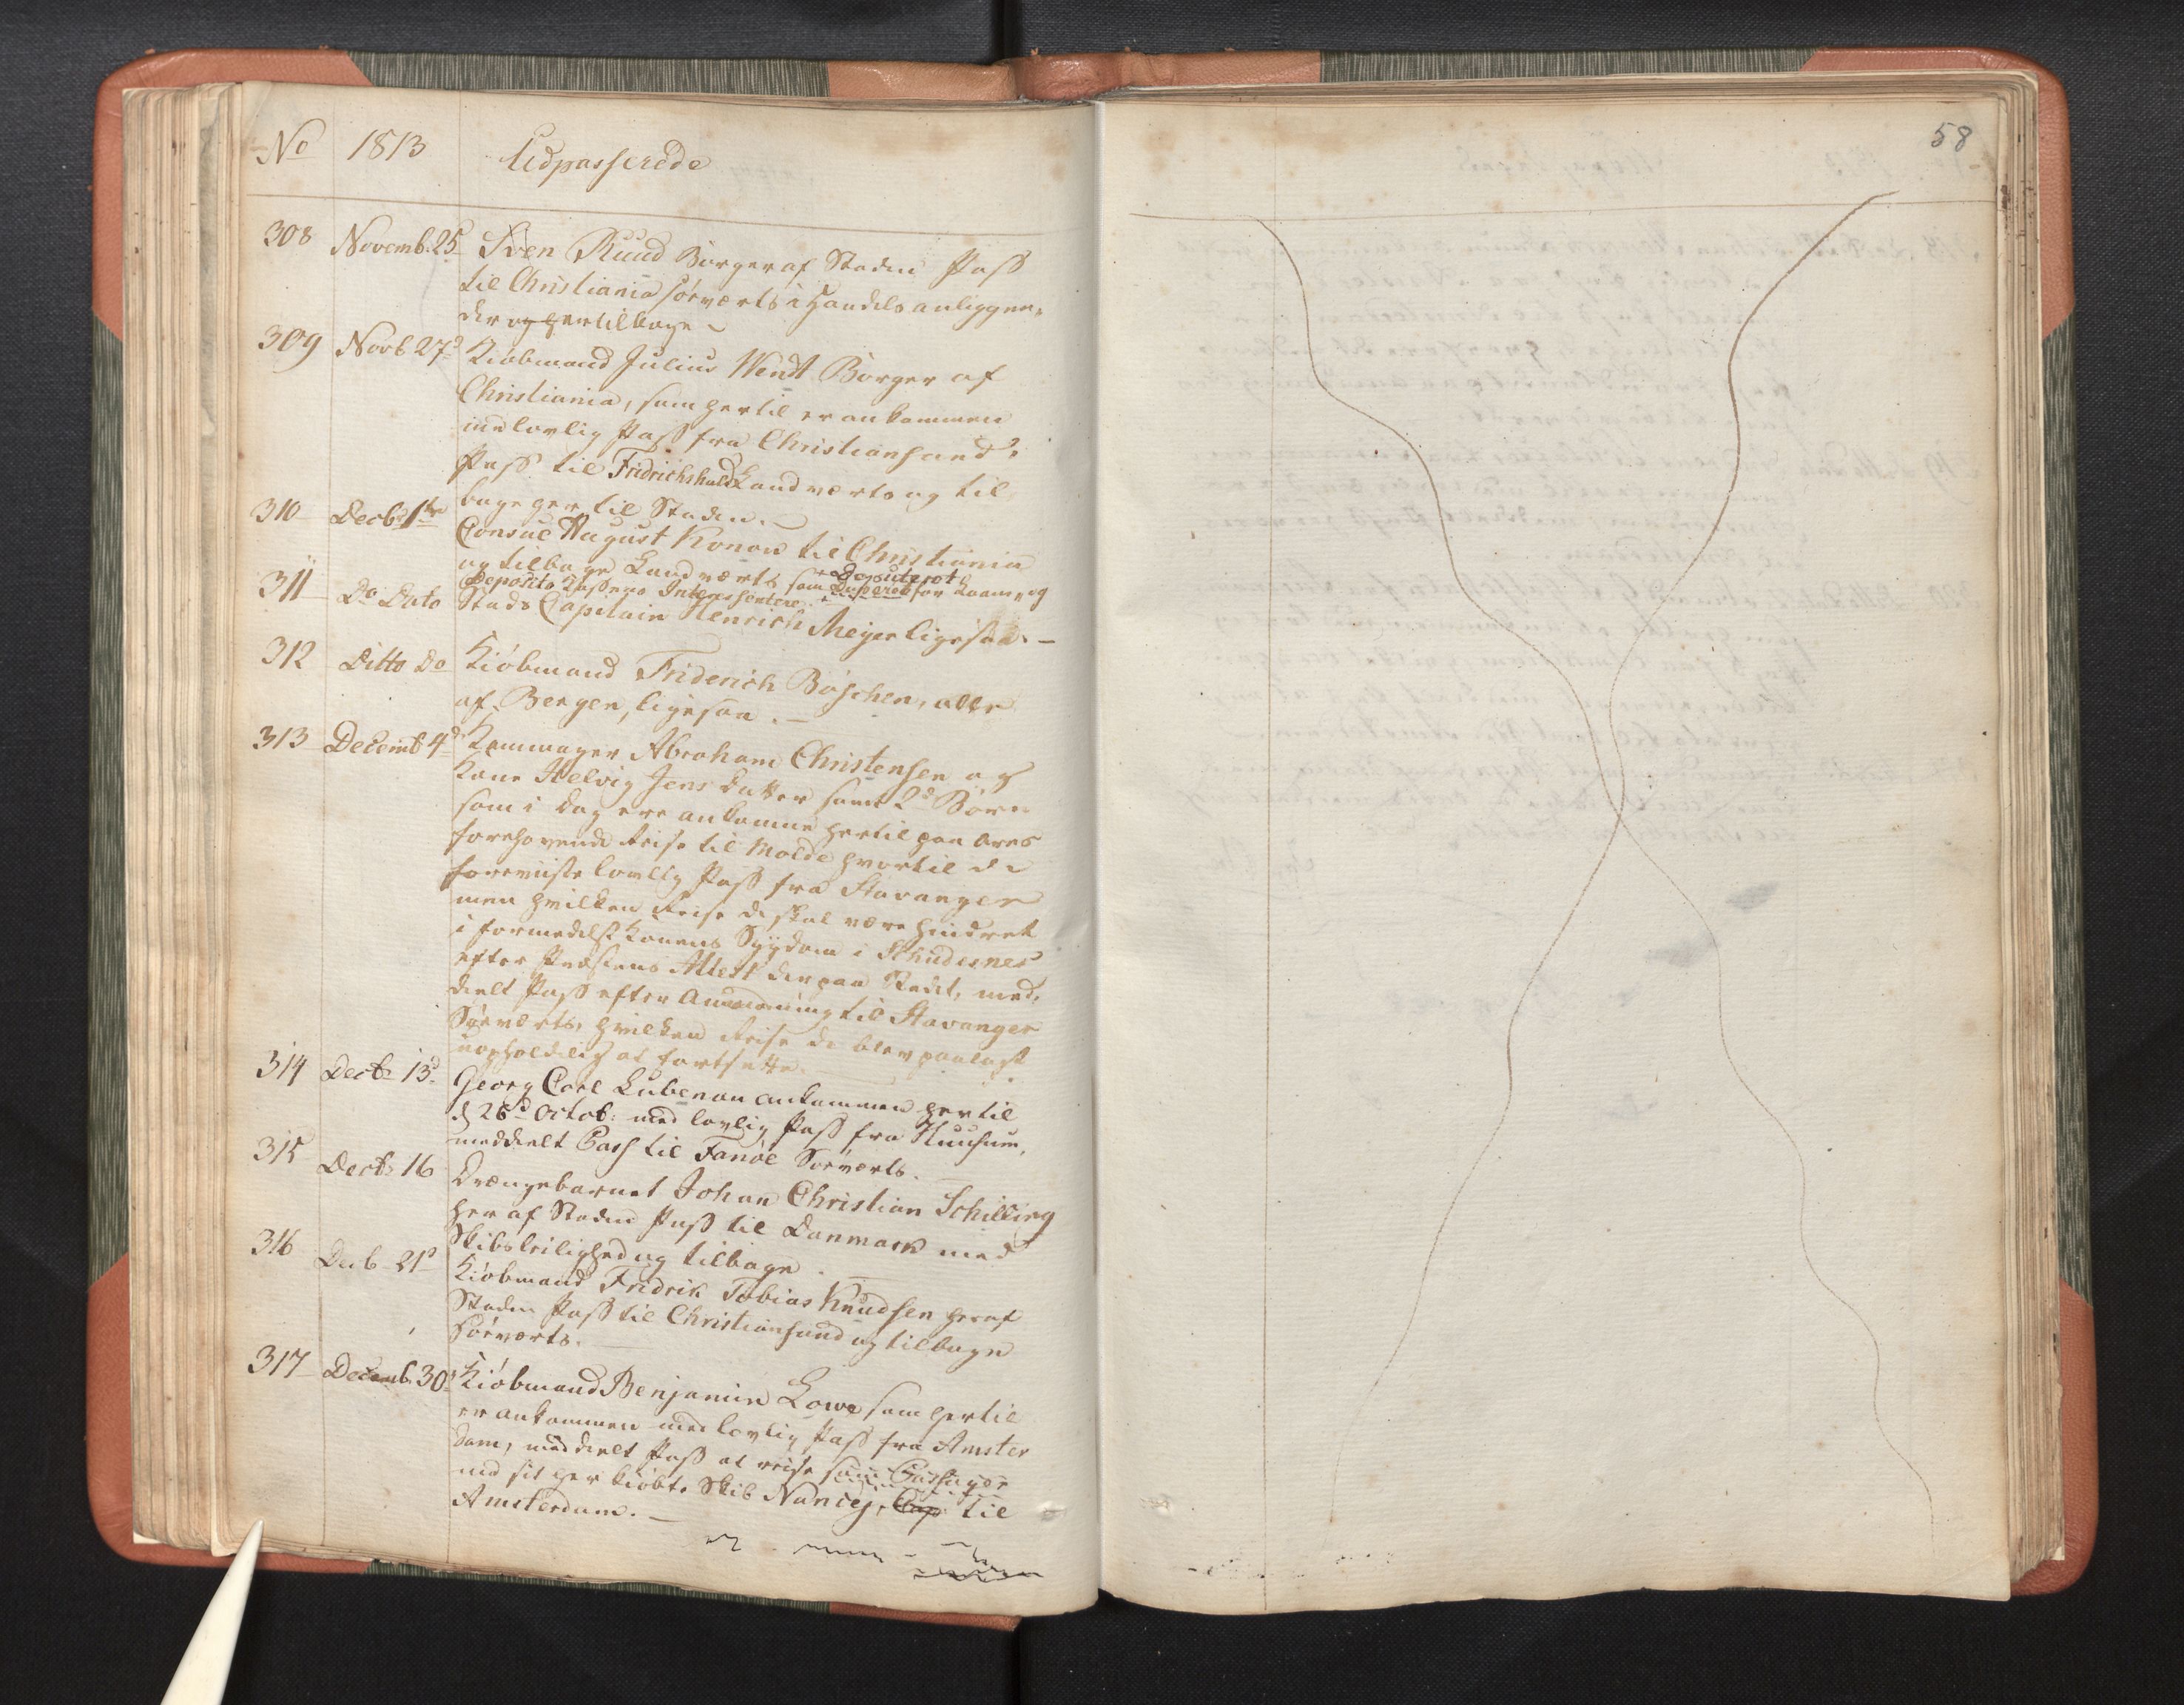 No 1813 Udpasserede
308 Novemb. 25 Sven Ruud Borger af Staden Pass
til Christiania söeværts i Handels anliggen,
der og her tilbage
309 Novb 27d Kiöbmand Julius Wendt Borger af
Christiania, som hertil er ankommen
med lovlig Pass fra Christiansand,
Pass til Fridrichshald Landværts og til,
bage her til Staden. —
310 Decbr 1te Consul August Konow til Christiania
og tilbage Landværts som Deputeret for Laane og
Deposito Cassens Interessentere
311 Do Dato Stads Capitain Henrich Meyer ligesaa. —
312 Ditto Do Kiöbmand Friderich Böschen, alle
af Bergen, ligesaa. —
313 Decemb 4d Abraham Christensen og
Kone Helvig Jens Datter samt 2de Börn
som i Dag ere ankomne hertil paa deres
forehavende Reise til Molde hvortil de
foreviiste lovlig Pass fra Stavanger
men hvilken Reise de skal være hindret
i formedelst Konens Sygdom i Schudesnes
efter Præstens Attest der paa Stedet, med,
deelt Pass efter Anmodning til Stavanger
Söeværts, hvilken Reise de blev paalagt
uopholdelig at fortsette. —
314 Decbr 13d Georg Carl Lubenau ankommen hertil
d 26d Octob: med lovlig Pass fra Huusum,
meddeelt Pass til Fanöe Söeværts.
315 Decbr 16 Drængebarnet Johan Christian Schilling
her af Staden Pass til Danmark med
Skibsleilighed og tilbage.
316 Decb 21d Kiöbmand Fridrik Tobias Knudsen her af
Staden Pass til Christiansund og tilbage
Söeværts. —
317 Decemb. 30d Kiöbmand Benjamin Lowe som hertil
er ankommen med lovlig Pass fra Amster
dam, meddeelt Pass at reise som Passager
med sit her kiöbte Skib Nancy, Cap til
Amsterdam. —
58